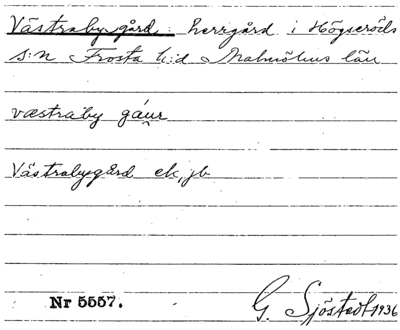 Västraby gård: herrgård i Högseröds
s:n Frosta h:d Malmöhus län
væstraby gáu̯r
Västrabygård ek, jb
Nr 5557. G. Sjöstedt 1936